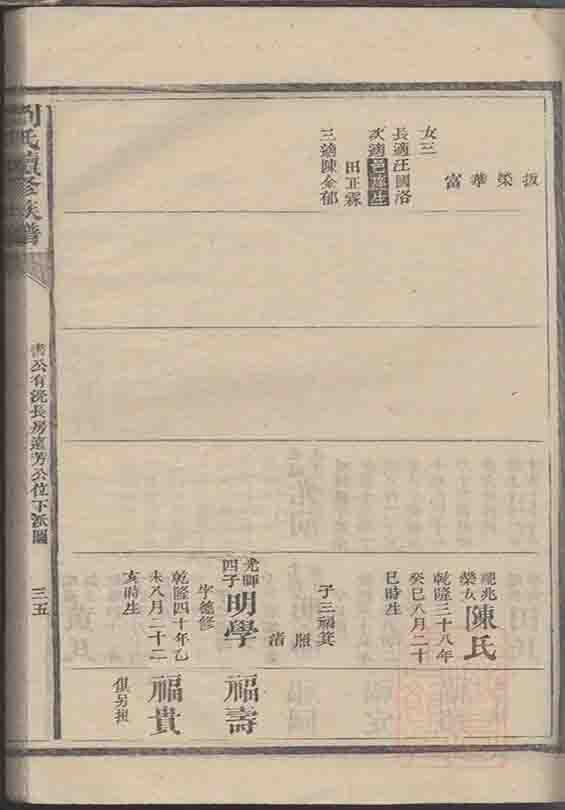 拔
榮
華
富
女三
長適汪國洛
次適邑庠生
田正霖
三適陳金郁
榮女
陳氏
乾隆三十八年
癸巳八月二十
巳時生
子三福箕
照
渚
光暉
四子
明學
字德修
乾隆四十年乙
未八月二十二
亥時生
福壽
福貴
俱另提
劉氏續修族譜
公有浣長房遠芳公位下派圖
三五